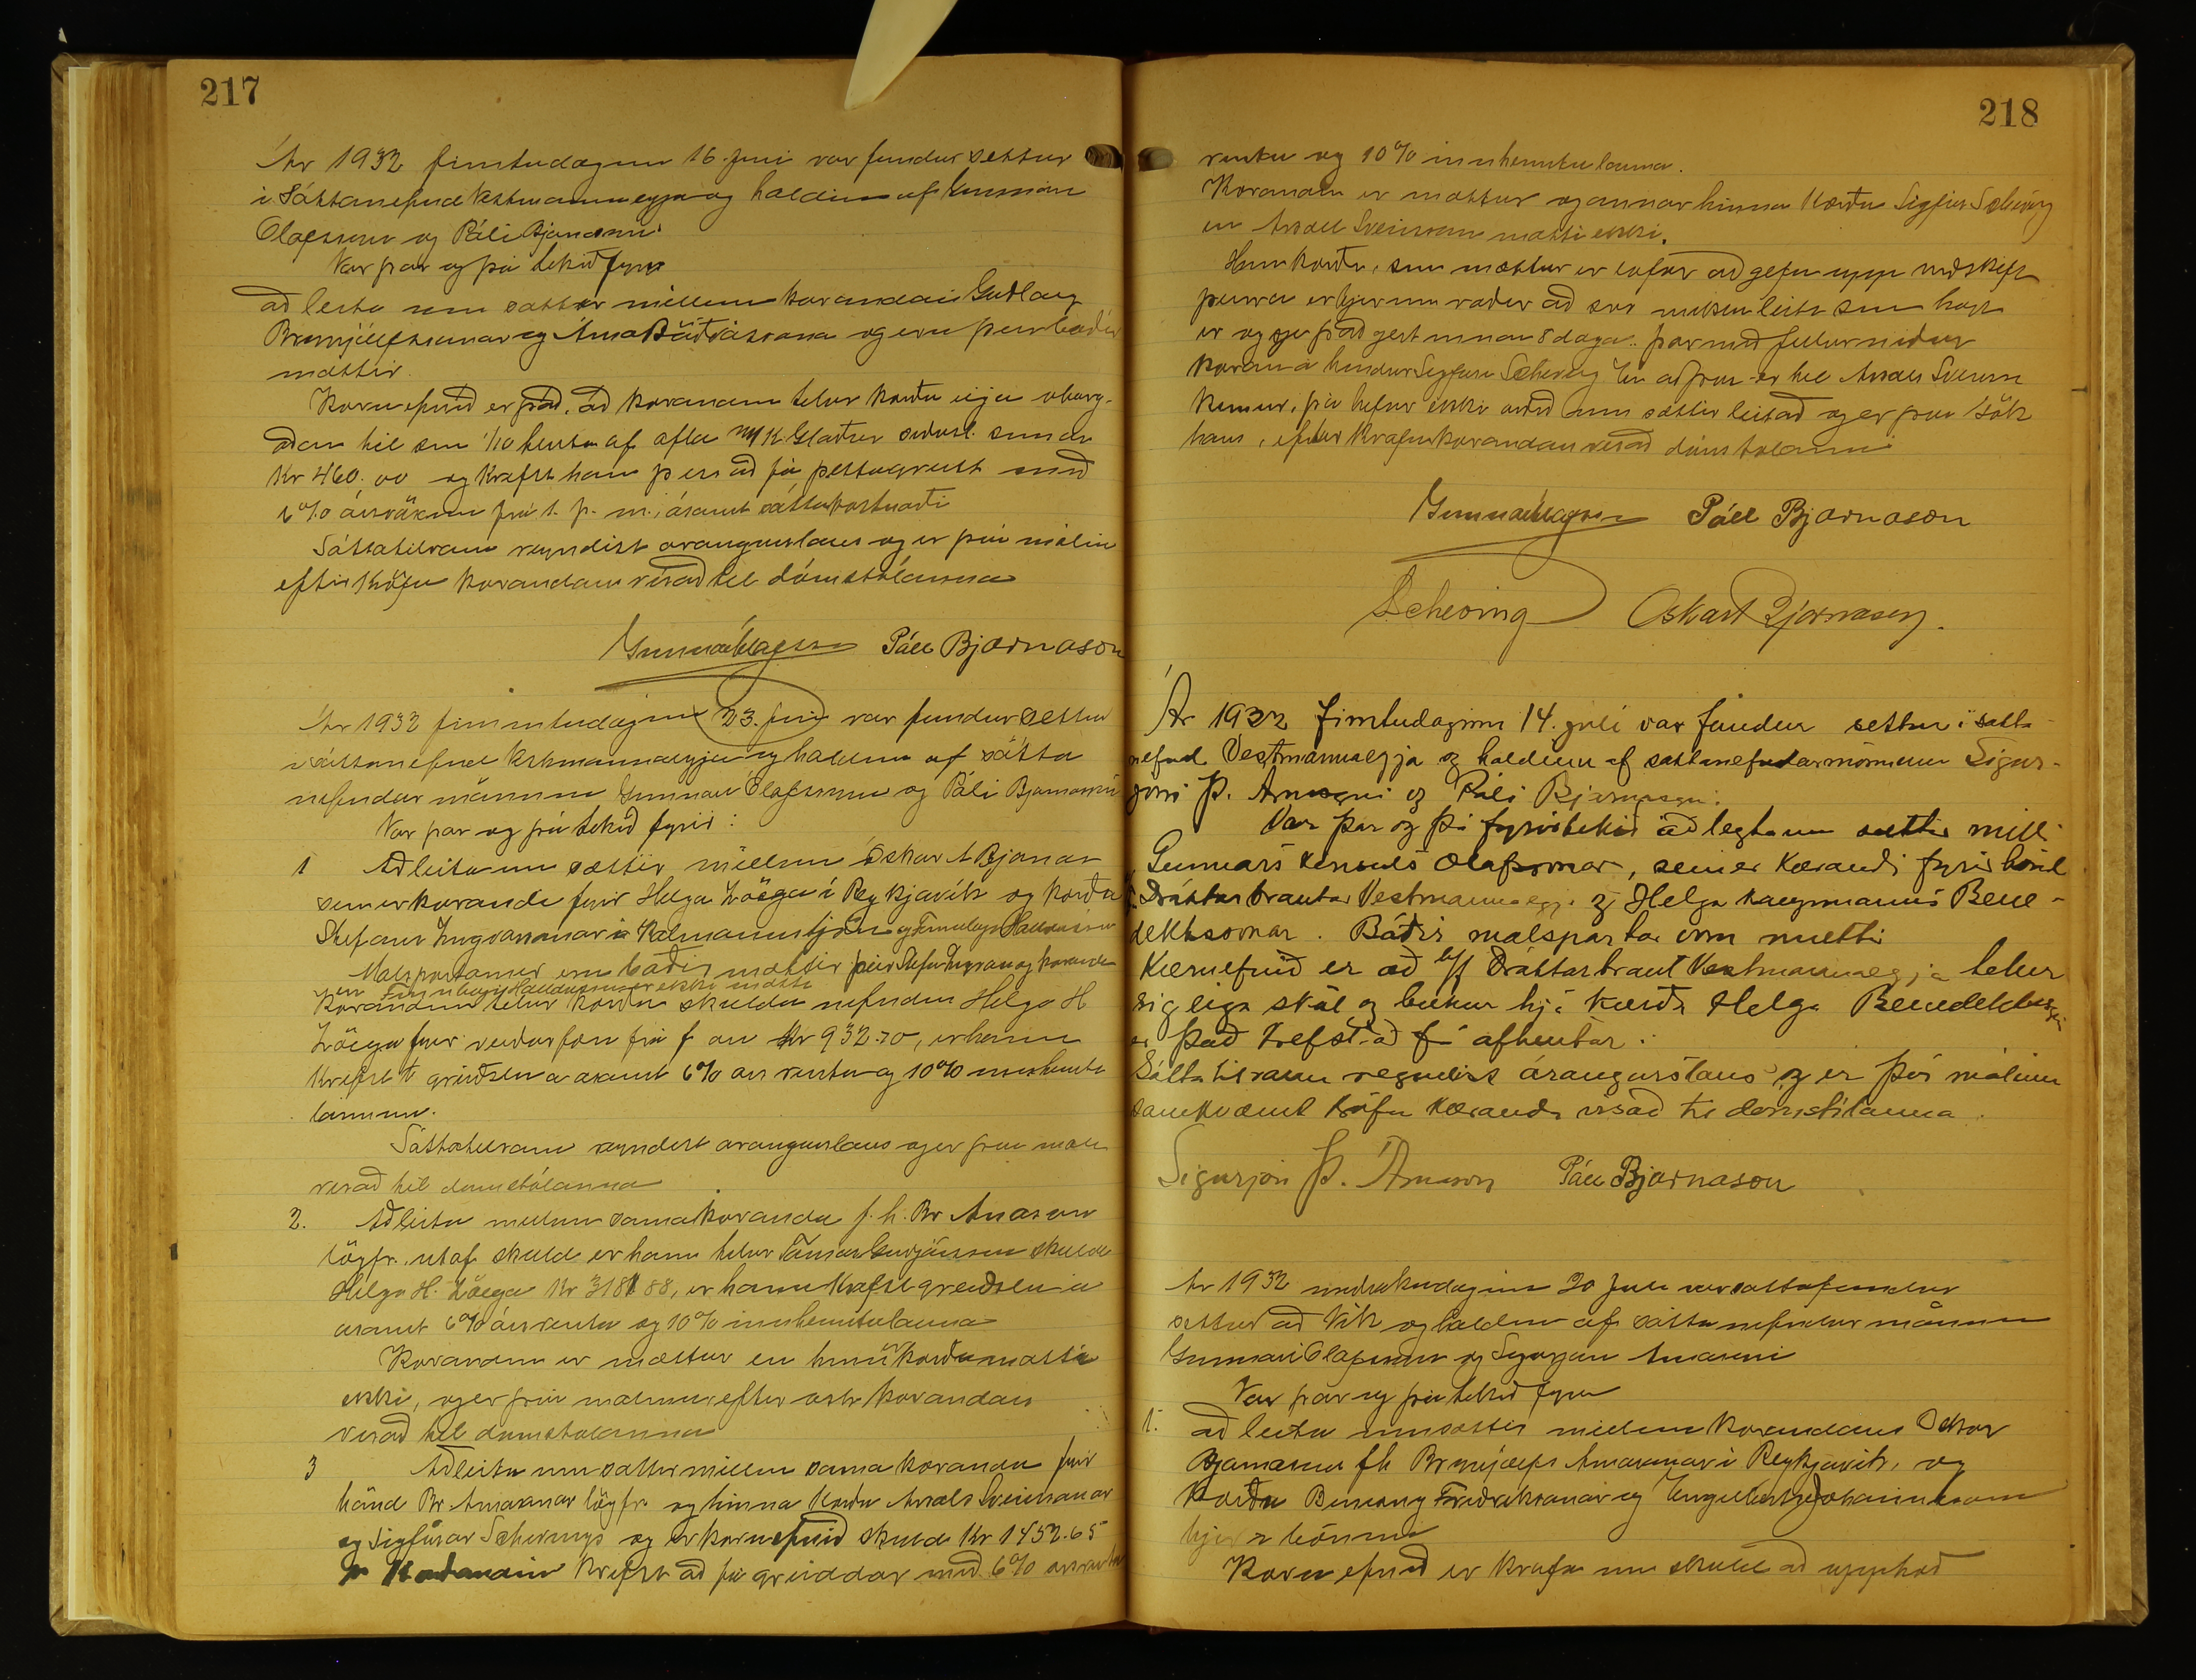 217
Ár 1932 fimtudaginn 16. júni var fundur settur
i Sáttanefnd Vestmannaeyja og haldinn af Gunnari
Ólafssyni og Páli Bjarnasyni
Var þar og þá tekið fyrir
að leita um sættir millum kærandans Guðlaugs
Brynjúlfssonar og Árna Böðvarssonar og eru þeir báðir
mættir.
Kæruefnið er það, að kærandinn telur kærða eiga óborg-
aðan til sín 1/10 hluta af afla
Kr 460.00 og krefst hann þess að fá þetta greitt með
6% ársvöxtum frá 1. f. m., ásamt sáttakostnaði
Sáttatilraun reyndist árangurslaus og er því málinu
eftir kröfu kærandans vísað til dómstólanna
Gunnar Ólafsson Páll Bjarnason
Ár 1932 fimmtudaginn 23. júní var fundur settur
i sáttanefnd Vestmannaeyja og haldinn af sátta
nefndar mönnum Gunnari Ólafssyni og Páli Bjarnasyni
Var þar og þá tekið fyrir:
1 Að leita um sættir millum Óskars A Bjarnas
sem er kærandi fyrir Helga Zoëga í Reykjavík og kærða
Stefans Ingvarssonar á Kalmannstjörn og
Malspartarnir eru báðir mættir þeir Stefán Ingvars og kærandi
en ekki mætti
Kærandinn telur kærða skulda nefndum Helga H
Zöega fyrir veiðarfæri frá f. ári Kr 932.70, er hann
Krefst greiðslu á ásamt 6% árs rentu og 10% innheimtu
launum.
Sáttatilraun reyndist árangurslaus og er því máli
vísað til domstólanna
2. Að leita millum sama kæranda f. h. Br Árnason
lögfr. útaf skuld er hann telur skulda
Helga H. Zöega Kr 3181 88, er hann krefst greiðslu á
asamt 6% ársrentu og 10% innheimtulauna
Kærandinn er mættur en hinn kærða mætti
ekki, og er því málinu eftir ósk kærandans
vísað til domstolanna
3 Að leita um sættir millum sama kæranda fyrir
hönd Br Árnasonar lögfr. og hinna kærðu Ársæls Sveinssonar
og Sigfúsar Schevings og er kæruefnið skuld Kr 1452.65
Kærandinn krefst að fá greiddar með 6% ársrentu
218
rentu og 10% innheimtulauna.
Kærandinn er mættur og annar hinna kærðu Sigfús Scheving
en Ársæll Sveinsson mætti ekki.
Hinn kærði, sem mættur er lofar að gefa upp viðskift
þeirra er hjer um ræðir að svo miklu leiti sem hægt
er og sje það gert innan 8 daga. þar með fellur niður
kæran á hendur Sigfúsi Scheving En að því er til Ársæls Sveinss
kemur, þá hefur ekki orðið um sættir leitað og er því sök
hans, eftir kröfu kærandans vísað dómstolanna
Gunnar Ólafsson Páll Bjarnason
SScheving Oskar A Bjarnasen.
Ár 1932 fimtudaginn 14. júlí var fundur settur i sátta
nefnd Vestmannaeyja og haldinn af sáttanefndarmönnum Sigur-
jóni Þ. Árnasyni og Páli Bjarnasyni.
Var þar og þá fyrirtekið að leyta um sættir milli
Gunnars konsuls Olafssonar, sem er kærandi fyrir hönd
h/f Dráttarbrautar Vestmannaeyja og Helga kaupmanns Bene-
diktssonar. Báðir malspartar voru mættir
Kæruefnið er að h/f Dráttarbraut Vestmannaeyja telur
sig eiga skál og bukka hjá kærða Helga Benediktssyni
er það krefst að fá afhentar.
Sáttatilraun reyndist árangurslaus og er því málinu
samkvæmt kröfu kæranda vísað til domstólanna.
Sigurjón Þ. Árnason Páll Bjarnason
Ár 1932 miðvikudaginn 20 júli var sáttafundur
settur að Vík og haldinn af sátta nefndar mönnum
Gunnari Olafssyni og Sigurjóni Árnasyni
Var þar og þá tekið fyrir
1. að leita um sættir millum kærandans Oskar
Bjarnasen fh Brynjólfs Árnasonar i Reykjavík, og
kærðu Benónýs Friðrikssonar og Engilberts Jóhannssonar
hjer i bænum
Kæruefnið er krafa um skuld að upphæð